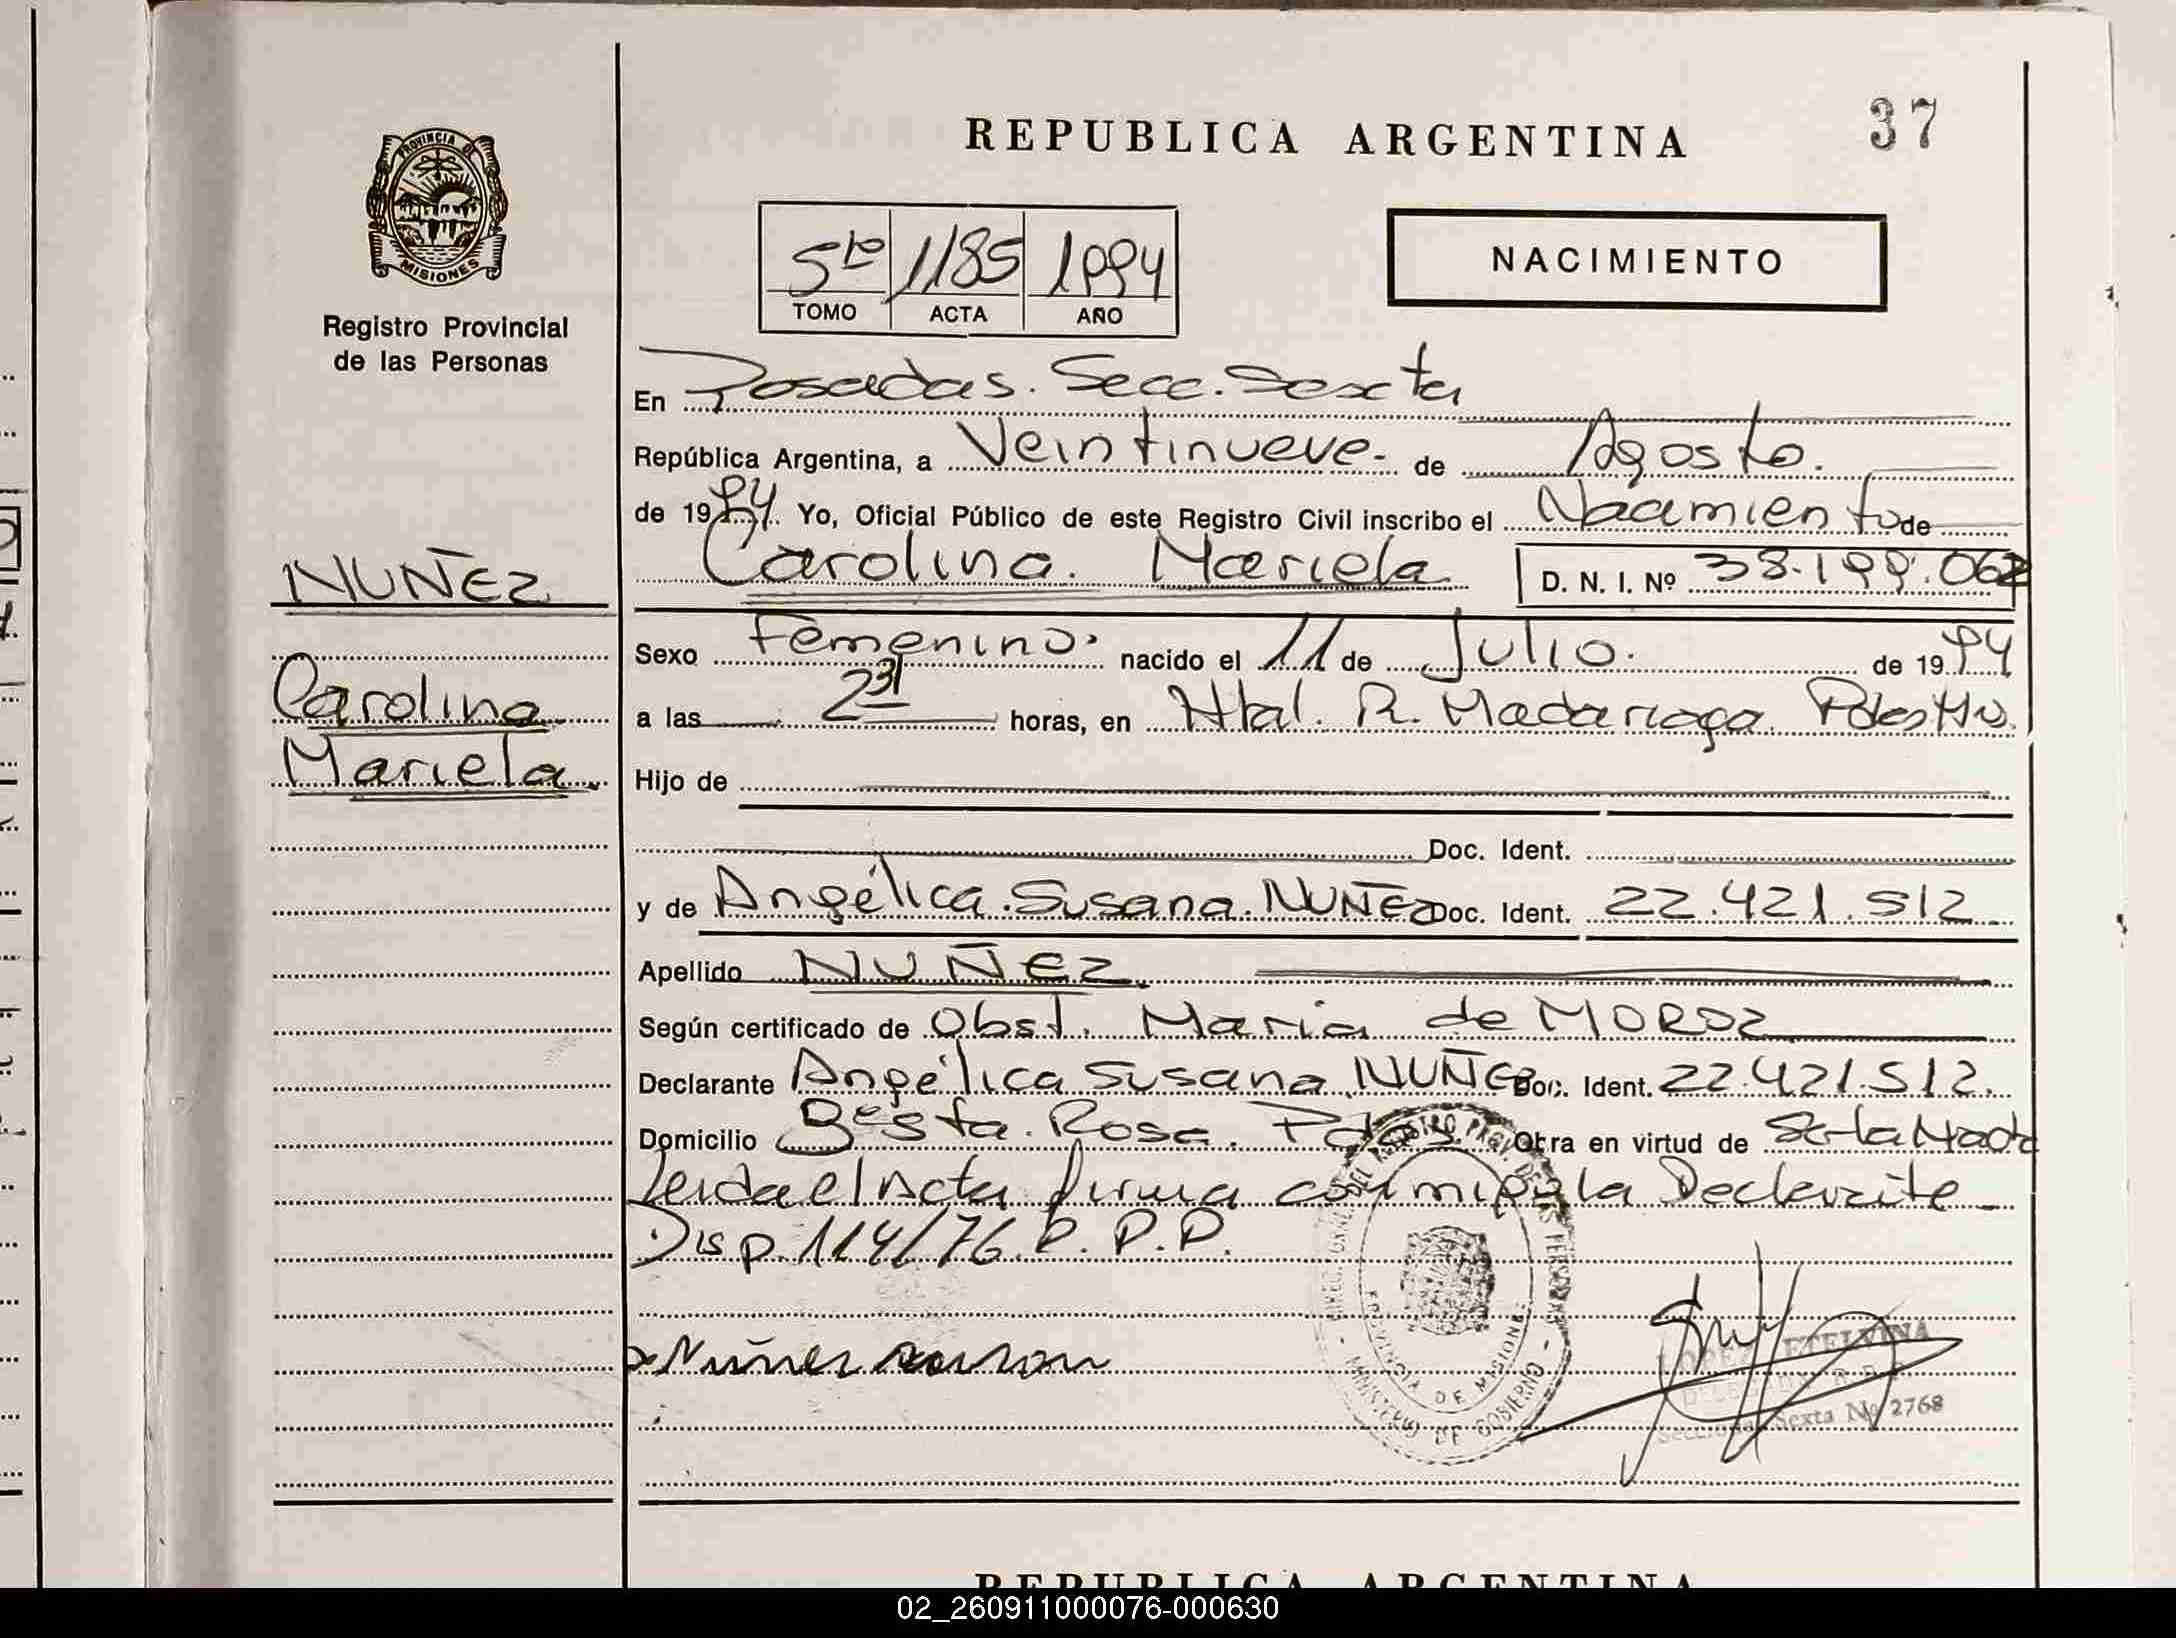 REPUBLICA ARGENTINA
37
PROVINCIA DE
MISIONES
Registro Provincial
de las Personas
5to 1185 1994
TOMO ACTA AÑO
NACIMIENTO
En Posadas. Secc. Sexta
República Argentina, a Veintinueve- de Agosto.
de 1994. Yo, Oficial Público de este Registro Civil inscribo el Nacimiento de
Carolina. Mariela D. N. I. Nº 38.199.062
NUÑEZ
Carolina
Mariela
Sexo Femenino. nacido el 11 de Julio. de 1994
a las 2 31 horas, en Htal. R. Madariaga. Pdas Ms.
Hijo de
Doc. Ident.
y de Angélica. Susana. NUÑEZ Doc. Ident. 22.421.512
Apellido NUÑEZ
Según certificado de Obst. Maria de MOROZ
Declarante Angélica Susana NUÑEZ Doc. Ident. 22.421.512.
Domicilio Bº Sta. Rosa. Pdas. Obra en virtud de Ser la Madre
Leida el Acta firma conmigo la Declarante
Disp. 114/76.
Nuñez
PROVINCIA DE MISIONES
MINISTERIO DE GOBIERNO
LOPEZ ETELVINA
Sexta Nº 2768
REPUBLICA ARGENTINA
02_260911000076-000630